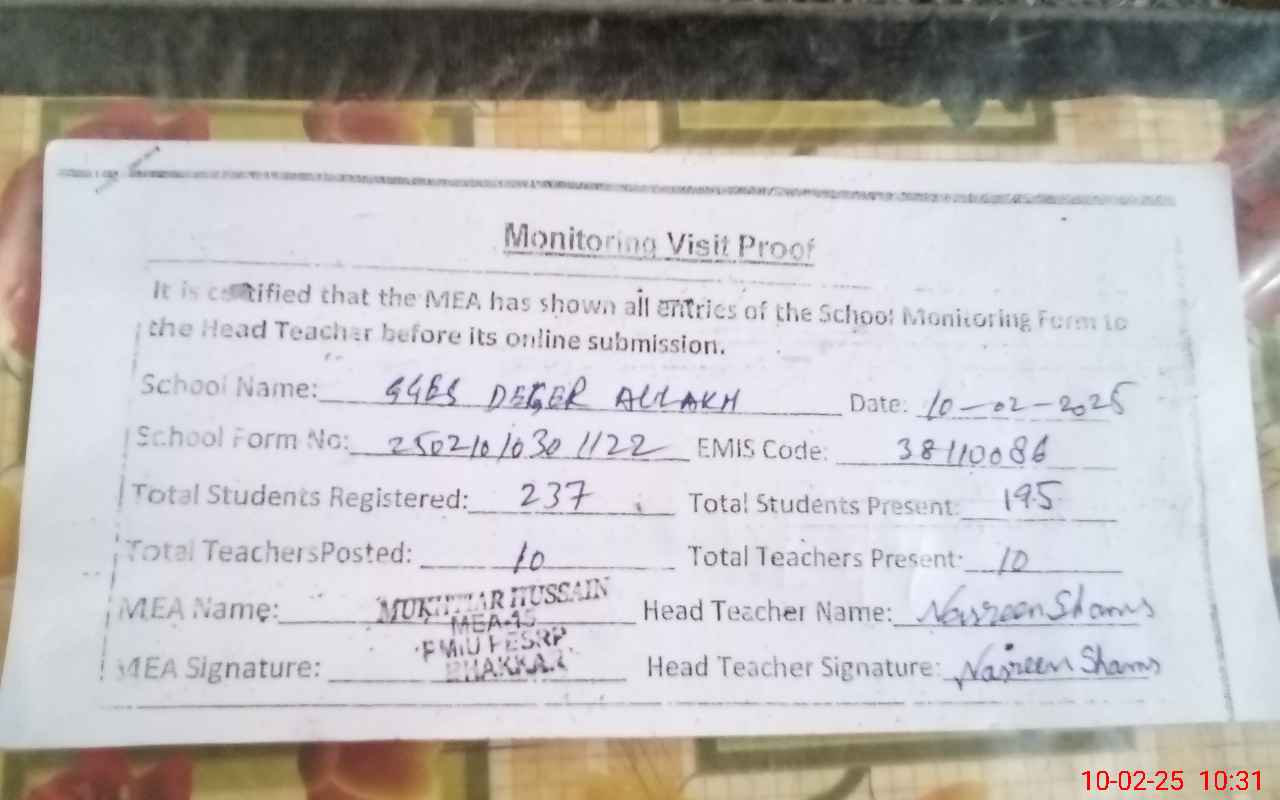 Monitoring Visit Proof
It is certified that the MEA has shown all entries of the School Monitoring Form to
the Head Teacher before its online submission.
School Name: GGES DEGER ALLAKH Date: 10-02-2025
School Form No: 2502101030 1122 EMIS Code: 38110086
Total Students Registered: 237 Total Students Present: 195
Total TeachersPosted: 10 Total Teachers Present: 10
MEA Name: MUKHTIAR HUSSAIN Head Teacher Name: Nasreen Shams
MEA-15
PMIU PESRP
MEA Signature: BHAKKAR Head Teacher Signature: Nasreen Shams
10-02-25 10:31